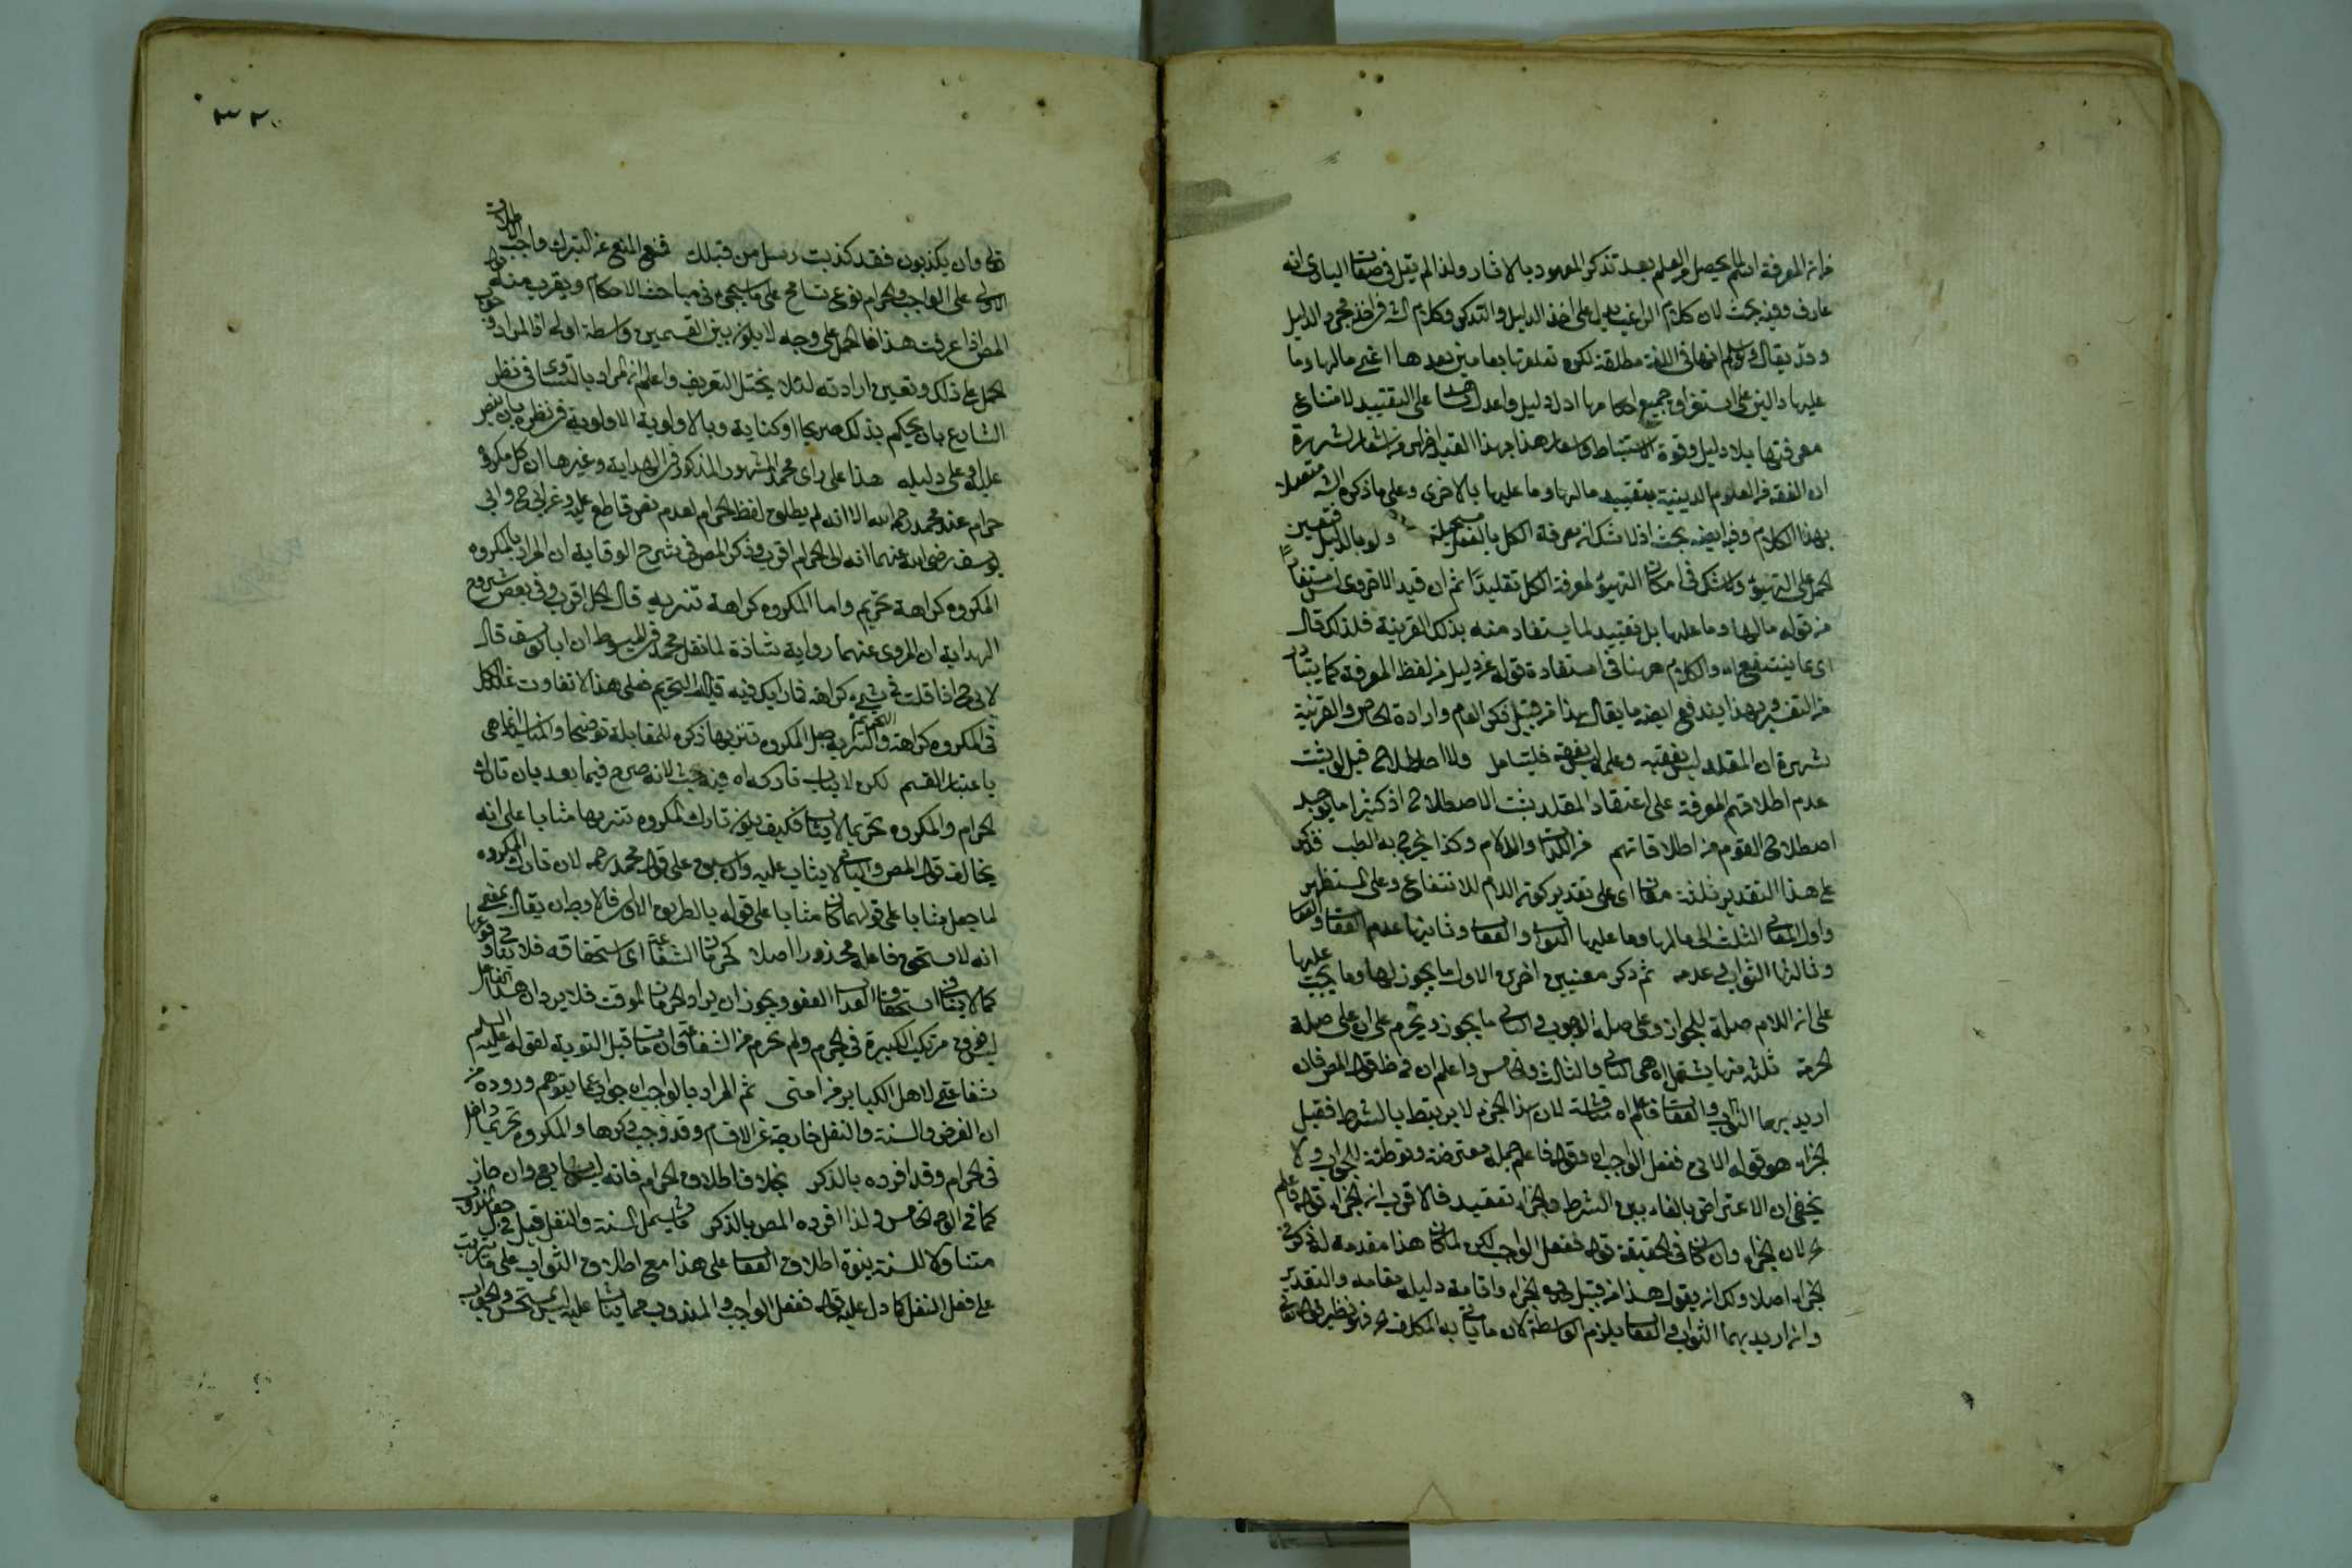 من ان المعرفة انما يحصل من العلم بعد تذكر المعهود بالاثار ولذا لم يقل فى صفات البارى انه
عارف وفيه بحث لان كلام الراغب يدل على اخذ الدليل والتذكر وكلام الشـ فى اخذ مجرد الدليل
وقد يقال انها فى اللغة مطلقة لكن تعلقها بما بين بعدها اعنى مالها وما
عليها دليل على استغراق جميع احكامها ادل دليل واعدل شاهد على التقييد لامتناع
معرفتها بلا دليل وقوة الاستنباط هذا القيد من شهرة
ان الفقه من العلوم الدينية بتقييد مالها وما عليها بالاخرى وعلى ما ذكره الشـ
بهذا الكلام وفيه ايضا بحث اذ لا شك ان معرفة الكل بالفعل مستحيلة ولو بالدليل فتعين
الحمل على التهيؤ ولا شك فى امكان التهيؤ لمعرفة الكل تقليدا ثم ان قيد الاخروى ليس مستفادا
من قوله مالها وما عليها بل تقييد لما يستفاد منه بذلك القرينة فلذلك قال
اى ما ينتفع به والكلام ههنا فى استفادة قوله عن دليل من لفظ المعرفة كما يتبادر
من التفسير وبهذا يندفع ايضا ما يقال هذا من قبيل ذكر العام وارادة الخاص والقرينة
شهرة ان المقلد ليس بفقيه وعلمه ليس بفقه فليتامل ولا اصطلاح قيل لو يثبت
عدم اطلاقهم المعرفة على اعتقاد المقلد يثبت الاصطلاح اذ كثيرا ما يوجد
اصطلاح القوم من اطلاقاتهم من اللذات والالام وكذا يخرج به الطب فذكر
على هذا التقدير ثلثة معان اى على تقدير كون اللام للانتفاع وعلى للتضرر
واول المعانى الثلث ان مالها وما عليها الثواب والعقاب وثانيها عدم العقاب والعقاب
وثالثها الثواب وعدمه ثم ذكر معنيين اخرين الاول ما يجوز لها وما يجب عليها
على ان اللام صلة للجواز وعلى صلة الوجوب والثانى ما يجوز ويحرم على ان على صلة
الحرمة ثلثة منها يشتمل اه هى الثانى والثالث والخامس واعلم ان فى ظاهر قول المص فان
اريد بهما الثواب والعقاب فاعلم اه مناقشة لان هذا الجزء لا يرتبط بالشرط فقيل
الجزاء هو قوله الاتى ففعل الواجب اه وقوله فاعلم جملة معترضة وتوطئة للجواب ولا
يخفى ان الاعتراض بالفاء بين الشرط والجزاء تعقيد فالاقرب ان الجزاء قوله فاعلم
لان الجزاء وان كان فى الحقيقة قوله ففعل الواجب لكن لما كان هذا مقدمة لذكره فى
الجزاء اصلا ولك ان يقول هذا من قبيل حذف الجزاء واقامة دليله مقامه والتقدير
وان اريد بهما الثواب والعقاب يلزم الواسطة لان ما يأتى به المكلف اه فهو نظير قوله تعالى
٣٢٠
تعالى وان يكذبون فقد كذبت رسل من قبلك فمع المنع عن الترك واجب اطلاق
الاولى على الواجب والحرام نوع تسامح على ما سيجىء فى مباحث الاحكام ويقرب منه
المص اذا عرفت هذا فالحمل على وجه لا يكون بين القسمين واسطة اولى اذ المراد
الحمل على ذلك وتعين ارادته لئلا يختل التعريف واعلم ان المراد بالتساوى فى نظر
الشارع بان يحكم بذلك صريحا او كناية وبالاولوية الاولوية فى نظره بان ينص
عليه او على دليله هذا على راى محمد المشهور المذكور فى الهداية وغيرها ان كل مكروه
حرام عند محمد رحمه الله الا انه لم يطلق لفظ الحرام لعدم نص قاطع عليه وعن ابى ح وابى
يوسف رضى الله عنهما انه الى الحرام اقرب وذكر المص فى شرح الوقاية ان المراد بالمكروه
المكروه كراهة تحريم واما المكروه كراهة تنزيه قال الحل اقرب وفى بعض شروح
الهداية ان المروى عنهما رواية شاذة لما نقل محمد فى المبسوط ان ابا يوسف قال
لابى ح اذا قلت فى شىء كراهة فما رايك فيه قال التحريم فعلى هذا لا تفاوت عند الكل
فى المكروه كراهة التحريم والتنزيه جعل المكروه تنزيها ذكره للمقابلة توضيحا والمناسب انما هى
باعتبار القسم لكن لا يثاب تاركه اه فيه بحث لانه صرح فيما بعد بان تارك
الحرام والمكروه تحريما لا يثاب فكيف يكون تارك المكروه تنزيها مثابا على انه
يخالف قول المص والثانى لا يثاب عليه وان سبق على قول محمد رحمه لان تارك المكروه
لما جعل مثابا على قولهما كان مثابا على قوله بالطريق الاولى فالاولى ان يقال بمعنى
انه لا يستحق فاعله محذورا اصلا كحرمان الشفاعة اى استحقاقه فلا
كما لا ينافى استحقاق العذاب العفو ويجوز ان يراد الحرمان الموقت فلا يرد ان هذا
ليس فوق مرتكب الكبيرة فى الجرم ولم يحرم من الشفاعة وان مات قبل التوبة لقوله عليه السلم
شفاعتى لاهل الكباير من امتى ثم المراد بالواجب اه جواب عما يتوهم وروده من
ان الفرض والسنة والنفل خارجة عن الاقسام وقد وجب ذكرها والمكروه تحريما داخل
فى الحرام وقد افرده بالذكر بخلاف اطلاق الحرام فانه ليس بشايع وان جاز
كما فى الوجه الخامس ولذا افرده المص بالذكر ما يشمل السنة والنفل قيل فى جعل المندوب
متناولا للسنة ينوه اطلاق العقاب على هذا مع اطلاق الثواب على
على فعل النفل كما دل عليه قوله ففعل الواجب والمندوب مما يثاب عليه ليس بمستحسن والجواب